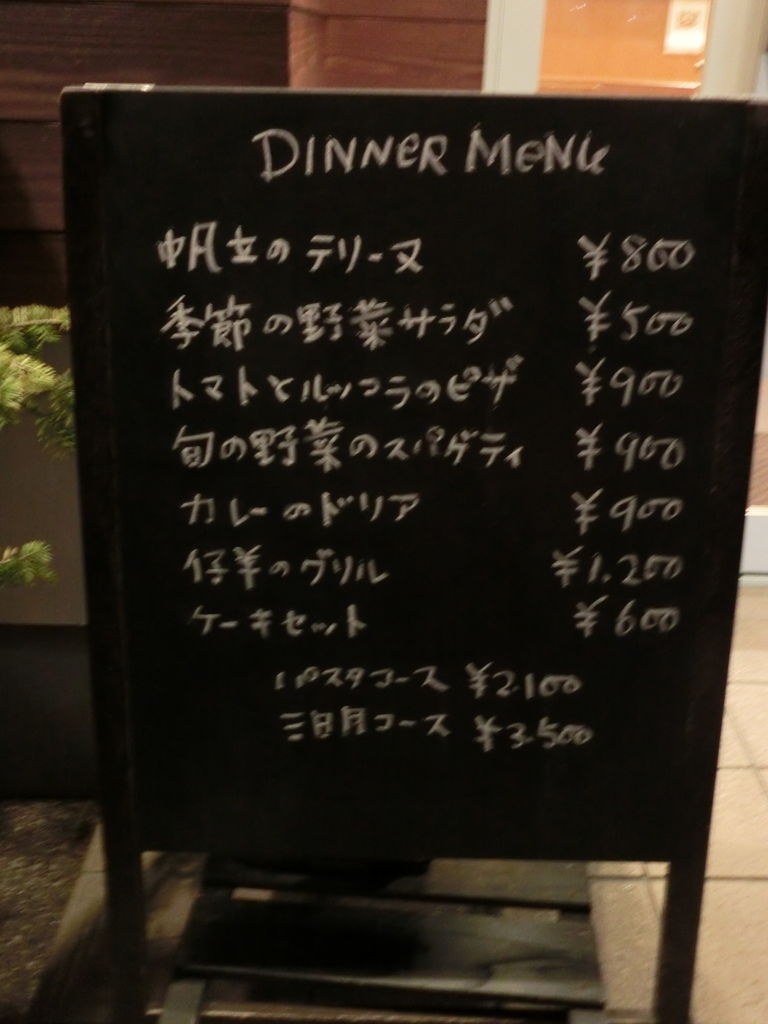 DINNER MENU
帆立のテリーヌ ¥800
季節の野菜サラダ ¥500
トマトとルッコラのピザ ¥900
旬の野菜のスパゲティ ¥900
カレーのドリア ¥900
仔羊のグリル ¥1.200
ケーキセット ¥600
パスタコース ¥2.100
三日月コース ¥3.500